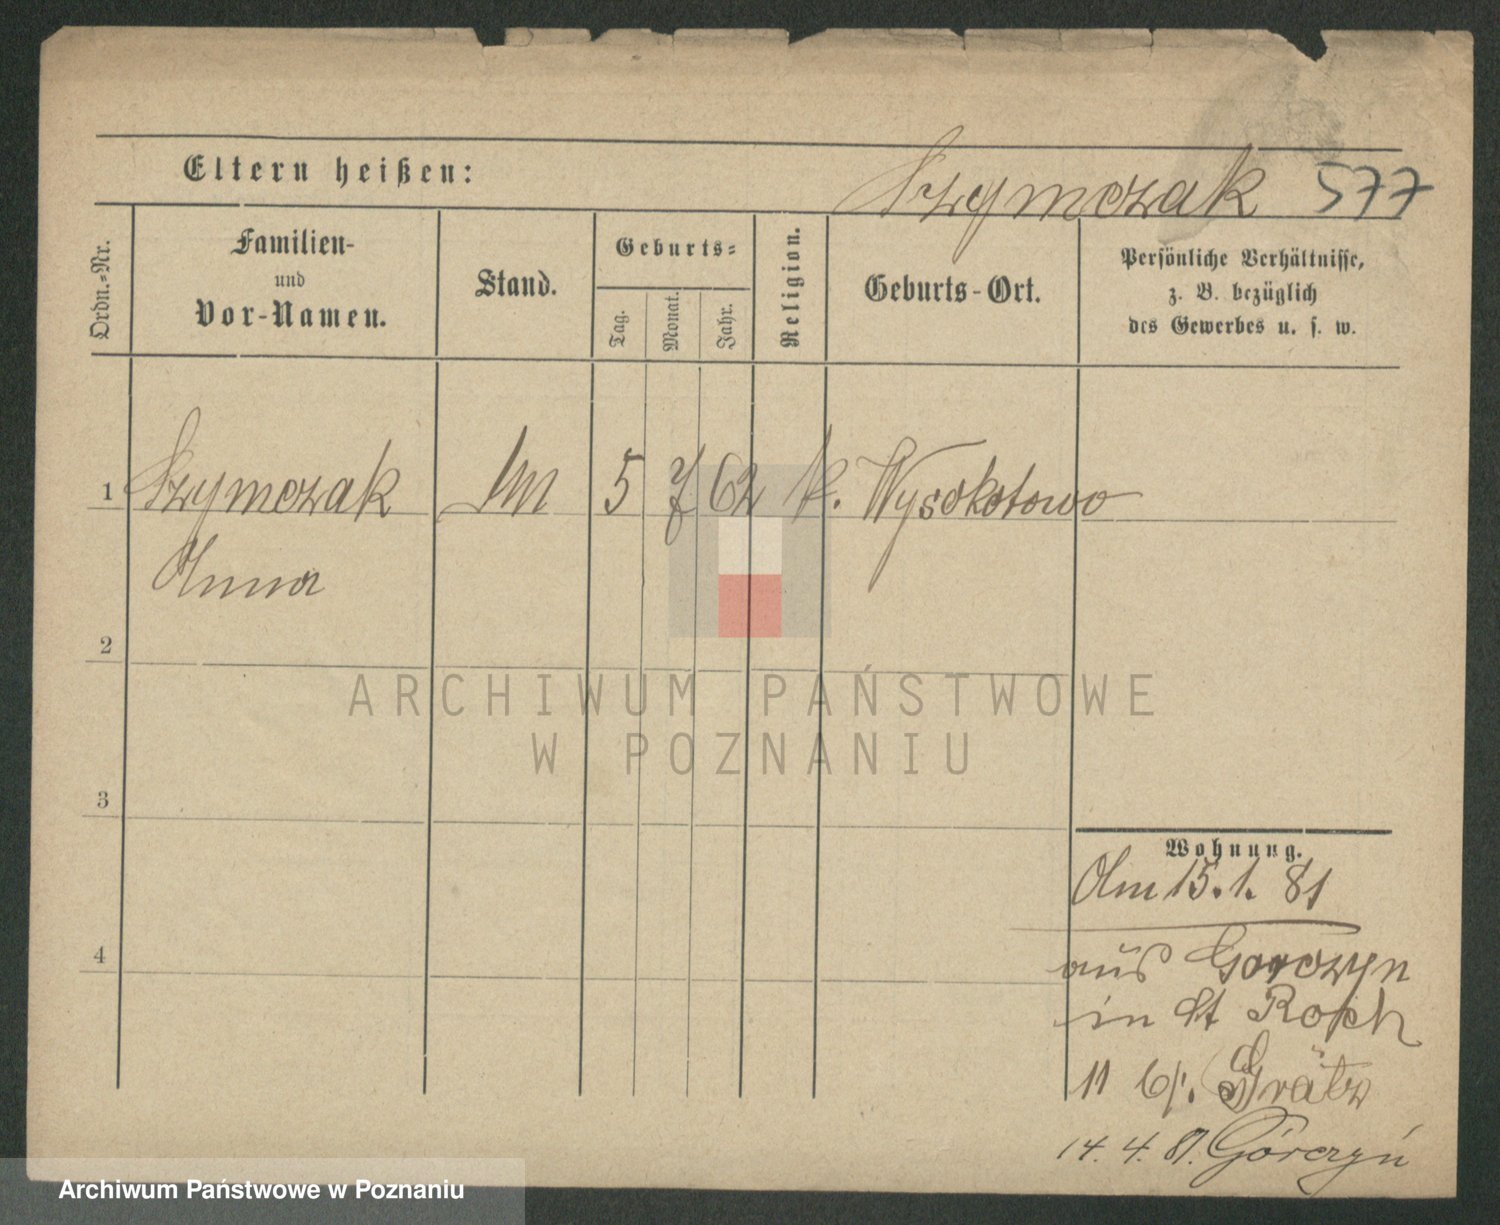 Eltern heißen:
Szymczak 577
Ordn.-Nr.
Familien-
und
Vor-Namen.
Stand.
Geburts-
Tag.
Monat.
Jahr.
Religion.
Geburts-Ort.
Persönliche Verhältnisse,
z. B. bezüglich
des Gewerbes u. s. w.
1 Szymczak 5 7 62 k. Wysokotowo
Anna
2
3
4
Wohnung.
Am 15. 1. 81
aus Gorczyn
in St Roch
11 6/. Grätz
14. 4. 81. Górczyń
ARCHIWUM PAŃSTWOWE
W POZNANIU
Archiwum Państwowe w Poznaniu